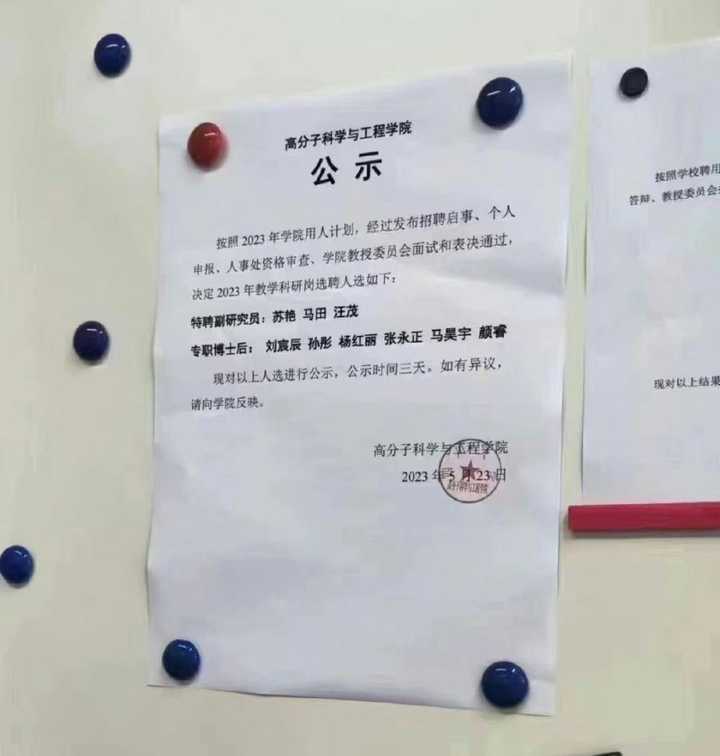 高分子科学与工程学院
公示
按照 2023 年学院用人计划，经过发布招聘启事、个人
申报、人事处资格审查、学院教授委员会面试和表决通过，
决定 2023 年教学科研岗选聘人选如下：
特聘副研究员：苏艳 马田 汪茂
专职博士后： 刘宸辰 孙彤 杨红丽 张永正 马昊宇 颜睿
现对以上人选进行公示，公示时间三天。如有异议，
请向学院反映。
高分子科学与工程学院
2023 年 5 月 23 日
按照学校聘用
答辩、教授委员会
现对以上结果